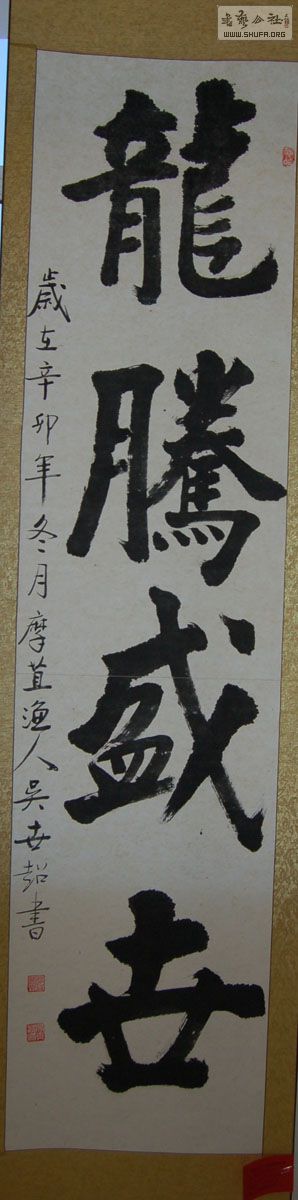 龍騰盛世
歲在辛卯年冬月摩苴漁人吳世超書
書藝公社
WWW.SHUFA.ORG